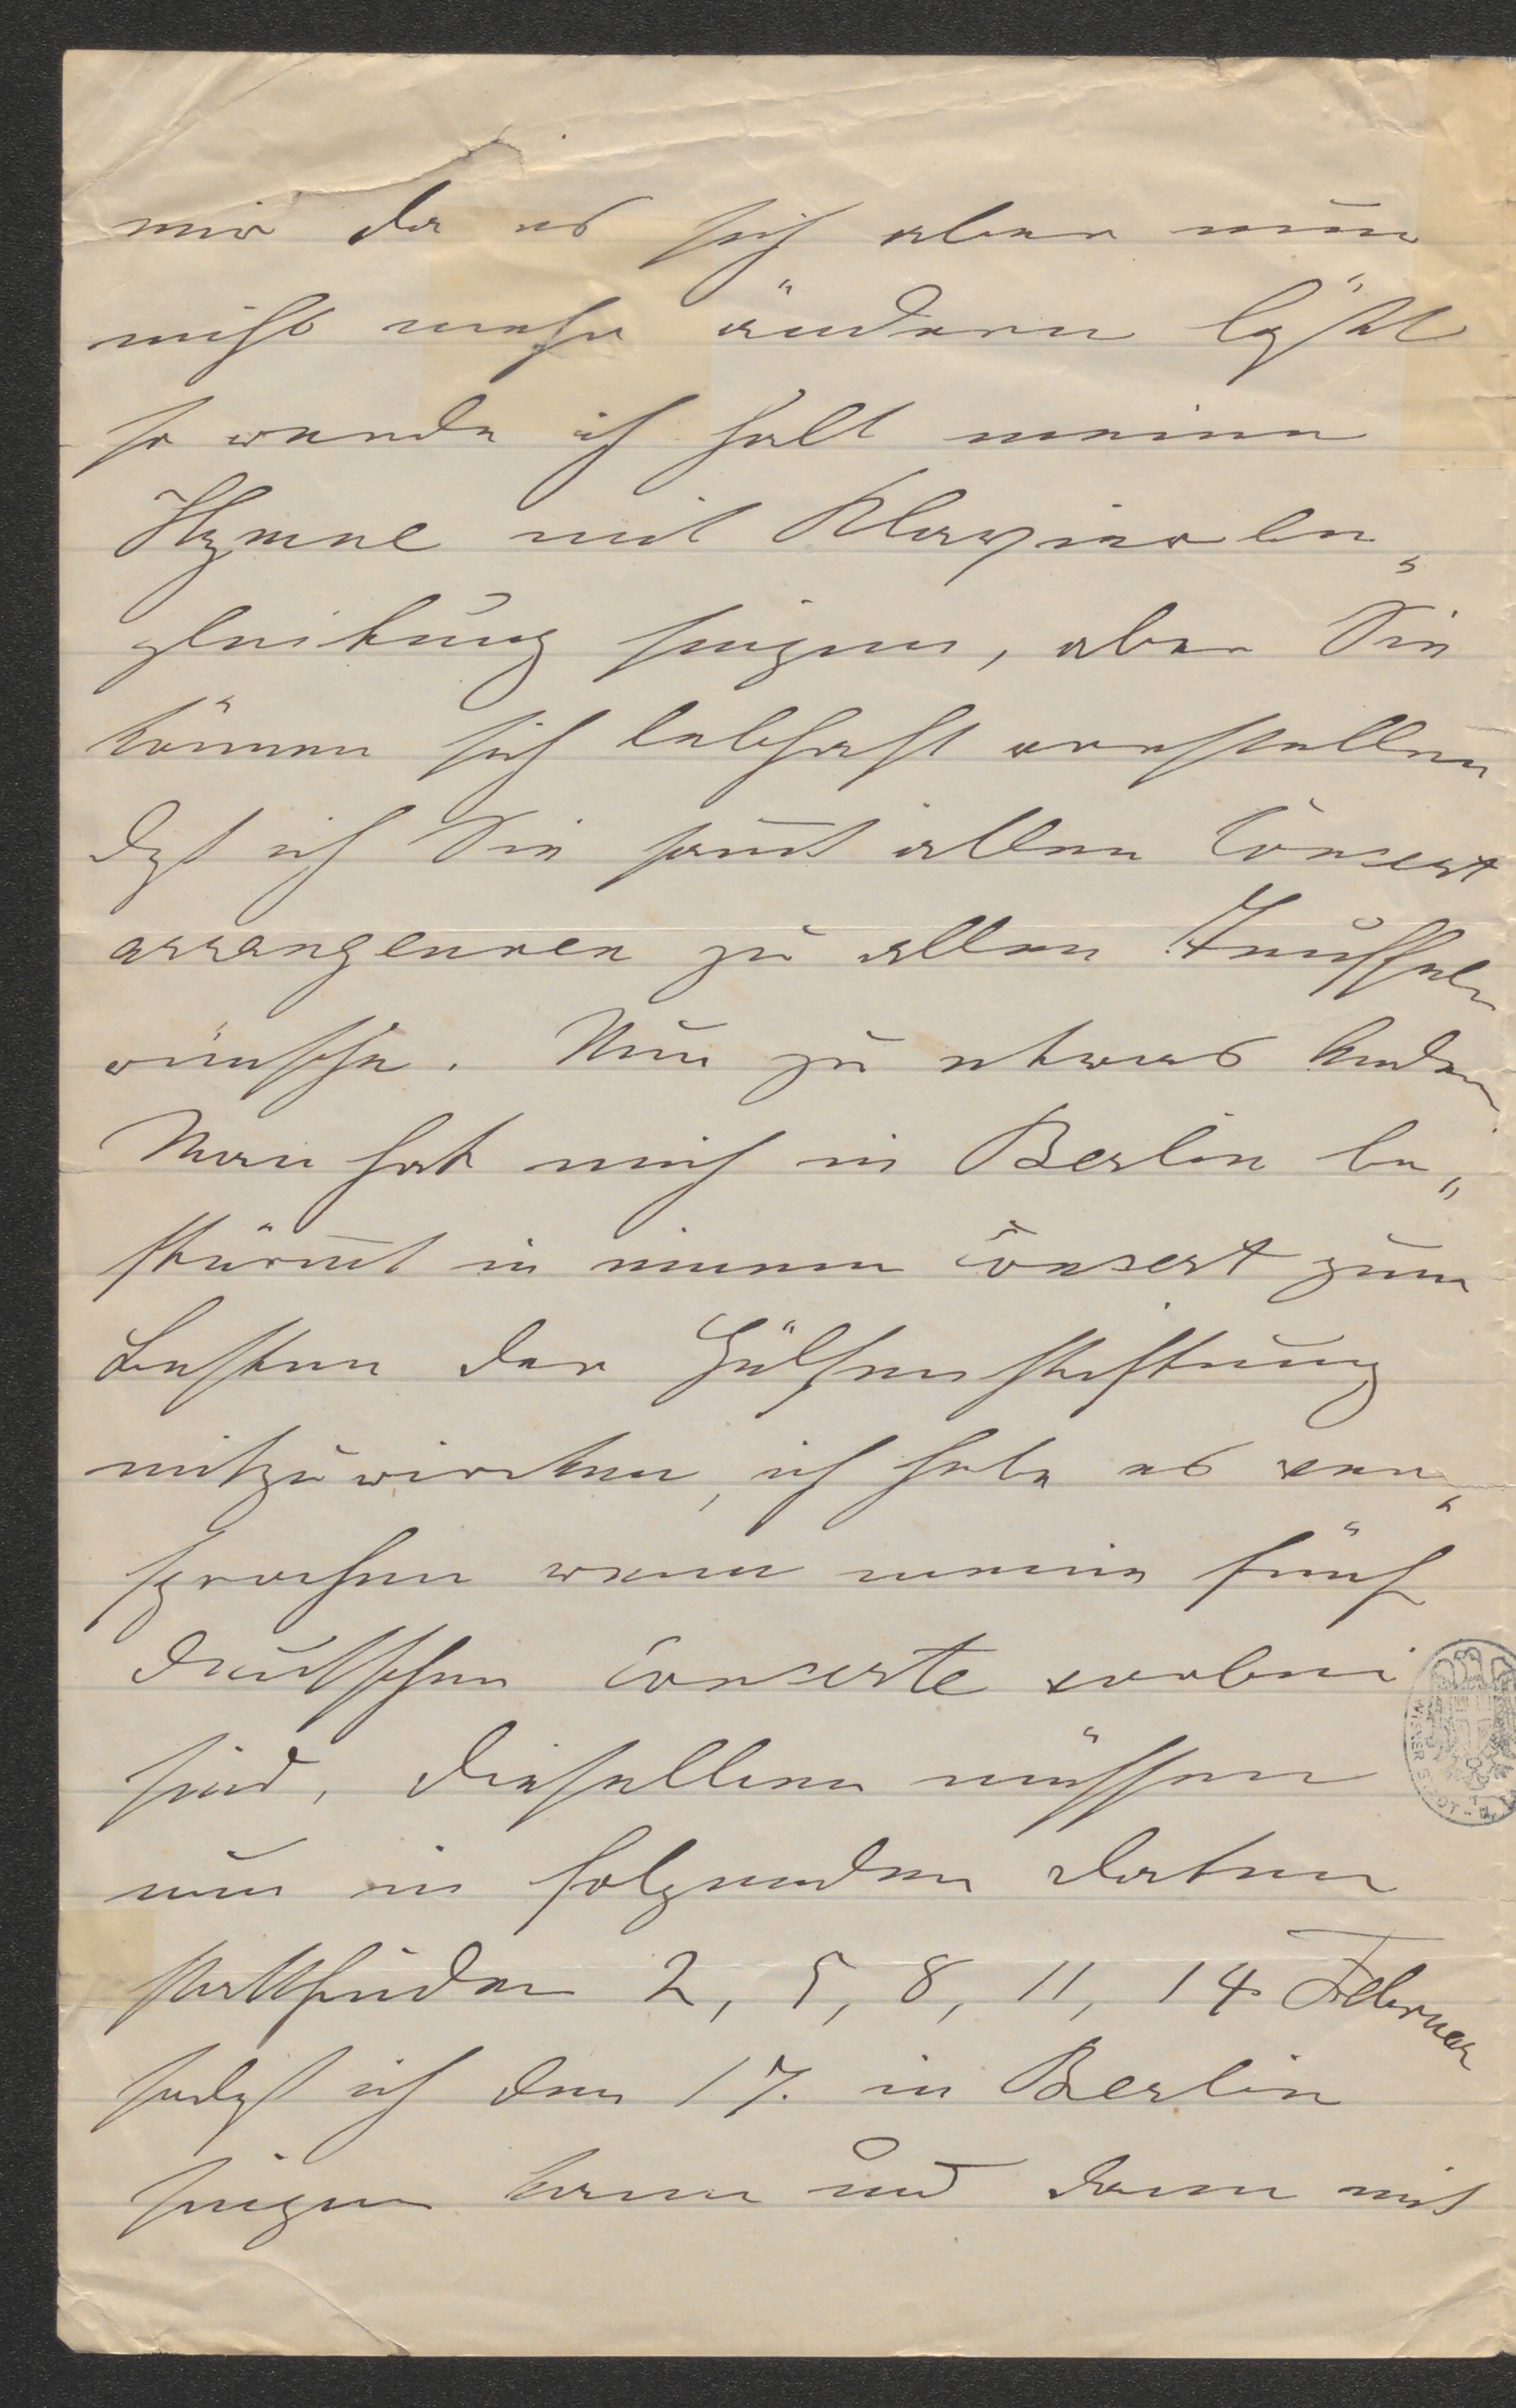 mir da es sich aber nun
nicht mehr ändern läßt
so werde ich halt meine
Hymne mit Klavierbe„
gleitung singen, aber Sie
können sich lebhaft vorstellen
daß ich Sie samt allen Concert
arrangeuren zu allen Teufeln
wünsche. Nun zu etwas Andern
Man hat mich in Berlin be„
stürmt in einem Concert zum
Besten der Hülfenstiftung
mitzuwirken, ich habe es ver„
sprochen wenn meine fünf
deutschen Concerte vorbei
sind, dieselben müssen
nun in folgenden Daten
stattfinden 2, 5, 8, 11, 14 Februar
sodaß ich den 17. in Berlin
singen kann und dann mit
WIENER STADT-